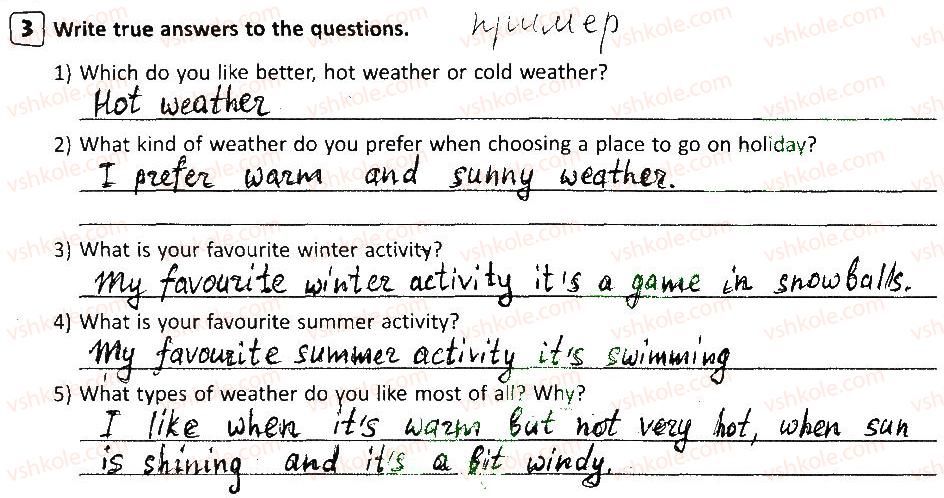 3 Write true answers to the questions. пример
1) Which do you like better, hot weather or cold weather?
Hot weather
2) What kind of weather do you prefer when choosing a place to go on holiday?
I prefer warm and sunny weather.
3) What is your favourite winter activity?
My favourite winter activity it's a game in snowballs.
4) What is your favourite summer activity?
My favourite summer activity it's swimming
5) What types of weather do you like most of all? Why?
I like when it's warm but not very hot, when sun
is shining and it's a bit windy.